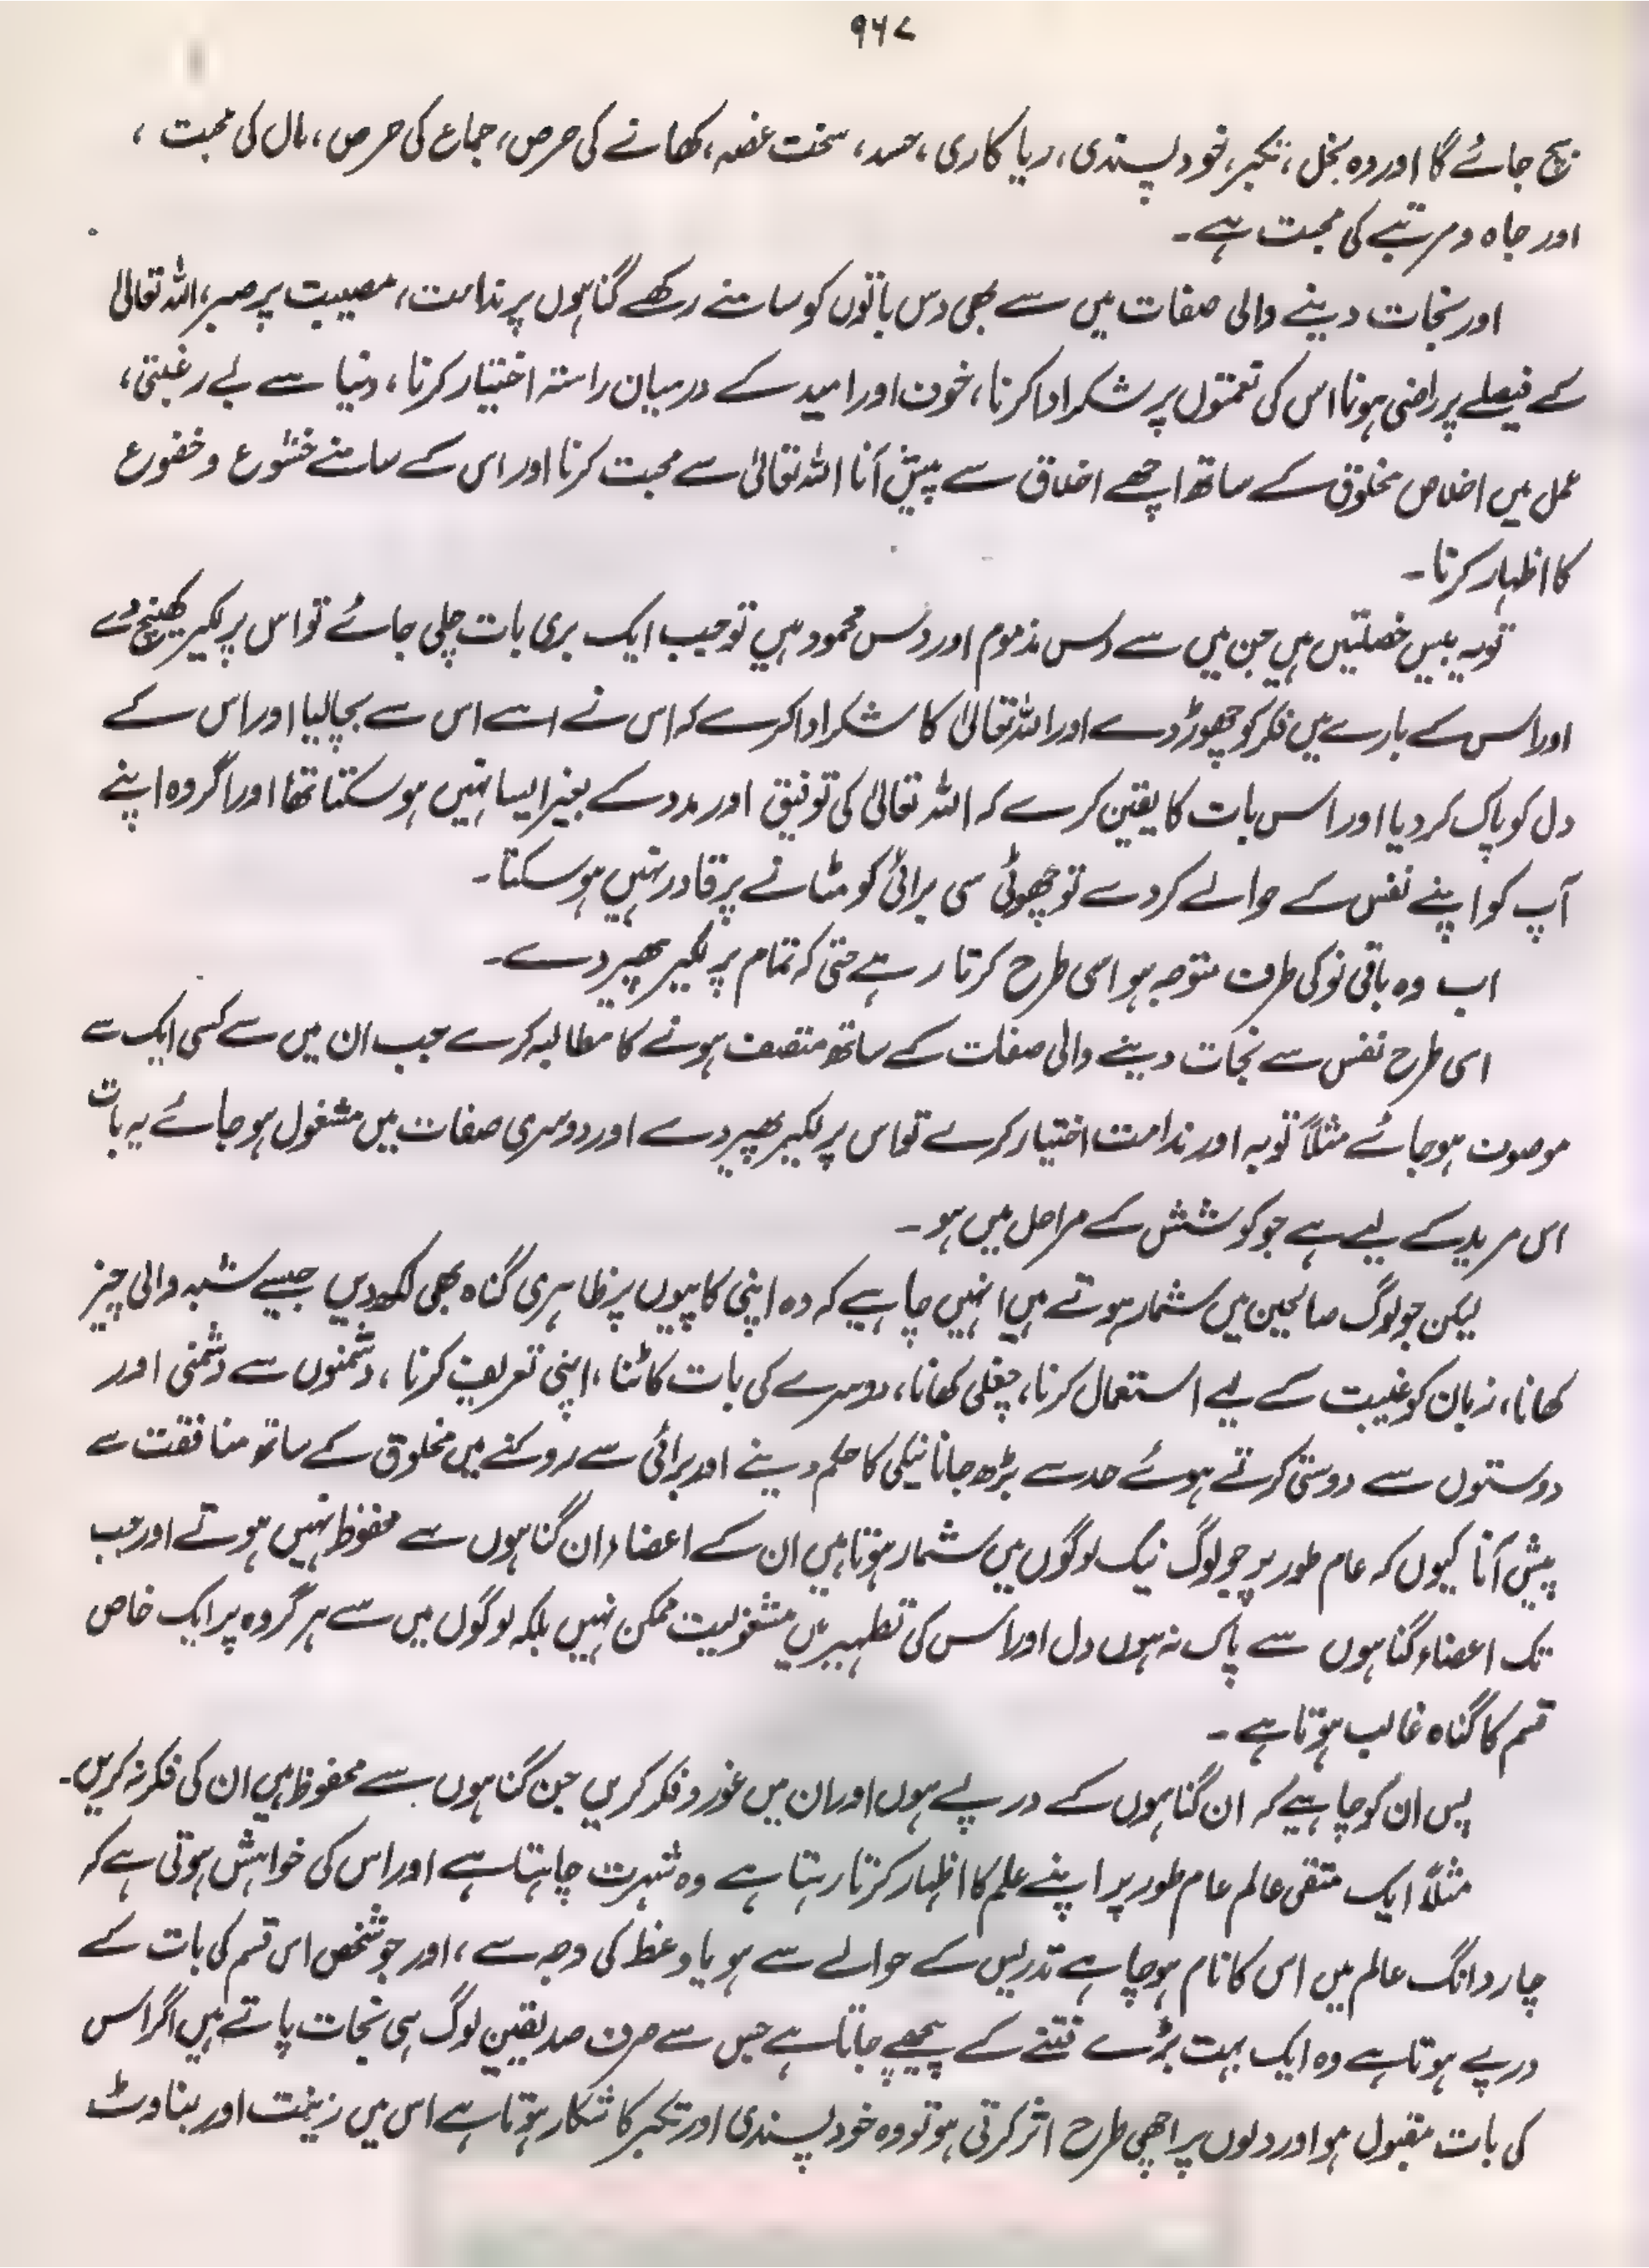 ۹۶۷
بچ جائے گا اور وہ بخل، تکبر، خود پسندی، ریا کاری، حسد، سخت غصہ، کھانے کی حرص، جماع کی حرص، مال کی محبت،
اور جاہ و مرتبے کی محبت ہے۔
اور نجات دینے والی صفات میں سے بھی دس باتوں کو سامنے رکھے گناہوں پر ندامت، مصیبت پر صبر، اللہ تعالیٰ
کے فیصلے پر راضی ہونا اس کی نعمتوں پر شکر ادا کرنا، خوف اور امید کے درمیان راستہ اختیار کرنا، دنیا سے بے رغبتی،
عمل میں اخلاص مخلوق کے ساتھ اچھے اخلاق سے پیش آنا اللہ تعالیٰ سے محبت کرنا اور اس کے سامنے خشوع و خضوع
کا اظہار کرنا۔
تو یہ بیس خصلتیں ہیں جن میں سے دس مذموم اور دس محمود ہیں تو جب ایک بری بات چلی جائے تو اس پر لکیر کھینچ دے
اور اس کے بارے میں فکر کو چھوڑ دے اور اللہ تعالیٰ کا شکر ادا کرے کہ اس نے اسے اس سے بچا لیا اور اس کے
دل کو پاک کر دیا اور اس بات کا یقین کرے کہ اللہ تعالیٰ کی توفیق اور مدد کے بغیر ایسا نہیں ہو سکتا تھا اور اگر وہ اپنے
آپ کو اپنے نفس کے حوالے کر دے تو چھوٹی سی برائی کو مٹانے پر قادر نہیں ہو سکتا۔
اب وہ باقی نو کی طرف متوجہ ہو اسی طرح کرتا رہے حتیٰ کہ تمام پر لکیر پھیر دے۔
اسی طرح نفس سے نجات دینے والی صفات کے ساتھ متصف ہونے کا مطالبہ کرے جب ان میں سے کسی ایک سے
موصوف ہو جائے مثلاً توبہ اور ندامت اختیار کرے تو اس پر لکیر پھیر دے اور دوسری صفات میں مشغول ہو جائے یہ بات
اس مرید کے لیے ہے جو کوشش کے مراحل میں ہو۔
لیکن جو لوگ صالحین میں شمار ہوتے ہیں انہیں چاہیے کہ وہ اپنی کاپیوں پر ظاہری گناہ بھی لکھ دیں جیسے شبہ والی چیز
کھانا، زبان کو غیبت کے لیے استعمال کرنا، چغلی کھانا، دوسرے کی بات کاٹنا، اپنی تعریف کرنا، دشمنوں سے دشمنی اور
دوستوں سے دوستی کرتے ہوئے حد سے بڑھ جانا نیکی کا حکم دینے اور برائی سے روکنے میں مخلوق کے ساتھ منافقت سے
پیش آنا کیوں کہ عام طور پر جو لوگ نیک لوگوں میں شمار ہوتا ہیں ان کے اعضاء ان گناہوں سے محفوظ نہیں ہوتے اور جب
تک اعضاء گناہوں سے پاک نہ ہوں دل اور اس کی تطہیر میں مشغولیت ممکن نہیں بلکہ لوگوں میں سے ہر گروہ پر ایک خاص
قسم کا گناہ غالب ہوتا ہے۔
پس ان کو چاہیے کہ ان گناہوں کے درپے ہوں اور ان میں غور و فکر کریں جن گناہوں سے محفوظ ہیں ان کی فکر نہ کریں۔
مثلاً ایک متقی عالم عام طور پر اپنے علم کا اظہار کرتا رہتا ہے وہ شہرت چاہتا ہے اور اس کی خواہش ہوتی ہے کہ
چار دانگ عالم میں اس کا نام ہو چاہے تدریس کے حوالے سے ہو یا وعظ کی وجہ سے، اور جو شخص اس قسم کی بات کے
درپے ہوتا ہے وہ ایک بہت بڑے فتنے کے پیچھے جاتا ہے جس سے صرف صدیقین لوگ ہی نجات پاتے ہیں اگر اس
کی بات مقبول ہو اور دلوں پر اچھی طرح اثر کرتی ہو تو وہ خود پسندی اور تکبر کا شکار ہوتا ہے اس میں زینت اور بناوٹ